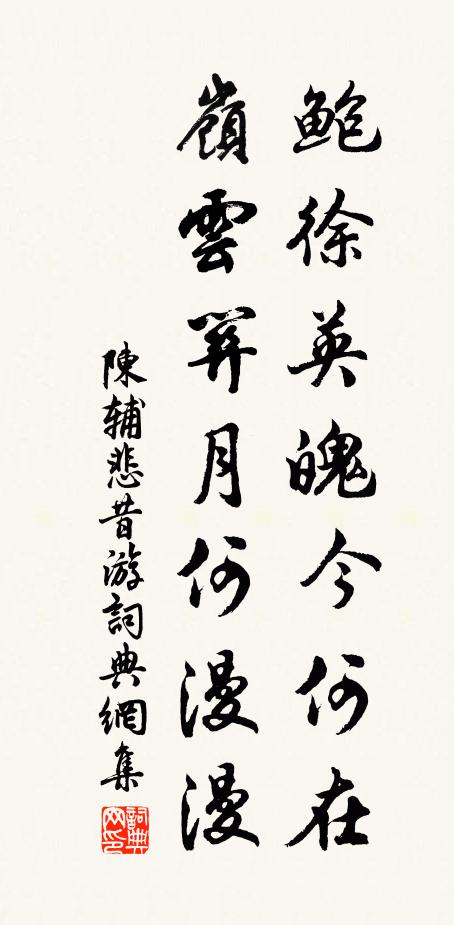 鮑徐英魄今何在
嶺雲月何漫漫
陳輔悲昔游詞典網集
詞典網印